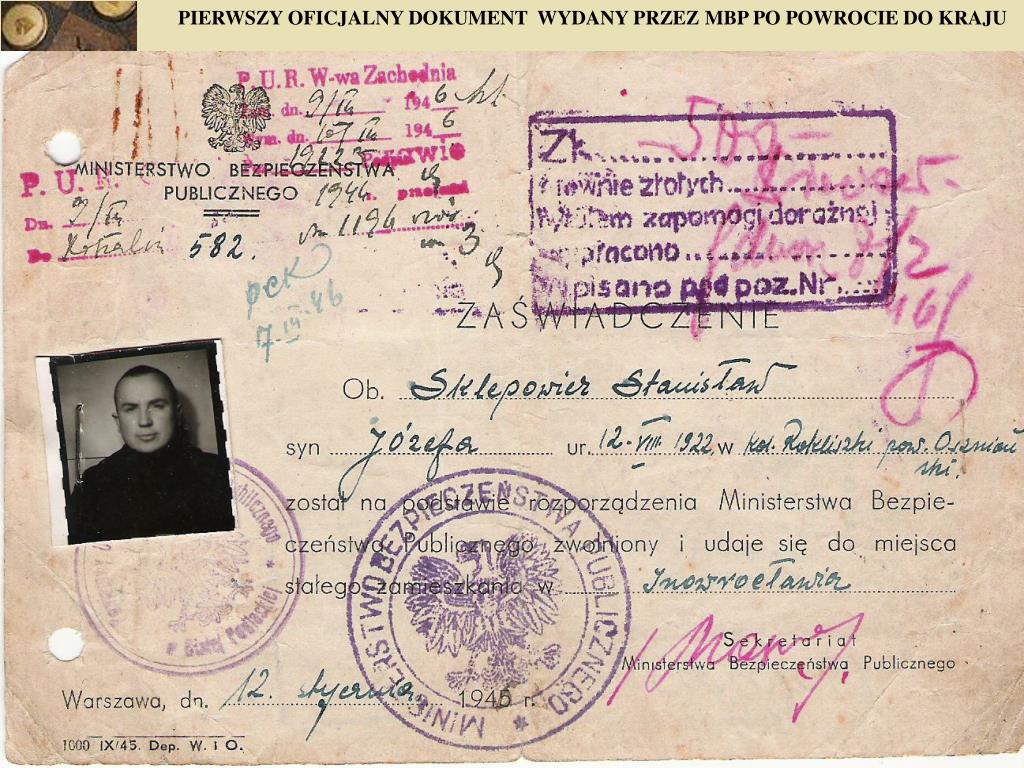 PIERWSZY OFICJALNY DOKUMENT WYDANY PRZEZ MBP PO POWROCIE DO KRAJU
P. U. R. W-wa Zachodnia
dn. 9/III 1946
dn. 1946
MINISTERSTWO BEZPIECZEŃSTWA
PUBLICZNEGO
P. U. R.
Dn. 9/III
Do
582.
1946
1194
PCK
7.III.46
Zł.
słownie złotych
tytułem zapomogi doraźnej
wypłacono
Wpisano pod poz. Nr.
500
ZAŚWIADCZENIE
Ob. Sklepowicz Stanisław
syn Józefa ur. 12-VIII 1922 w kol. Rokliszki pow. Oszmiań
ski.
został na podstawie rozporządzenia Ministerstwa Bezpie-
czeństwa Publicznego zwolniony i udaje się do miejsca
stałego zamieszkania w Inowrocławia
Sekretariat
Ministerstwa Bezpieczeństwa Publicznego
Warszawa, dn. 12. stycznia 1945 r.
MINISTERSTWO BEZPIECZEŃSTWA PUBLICZNEGO
w Białej Podlaskiej
1000 IX/45. Dep. W. i O.